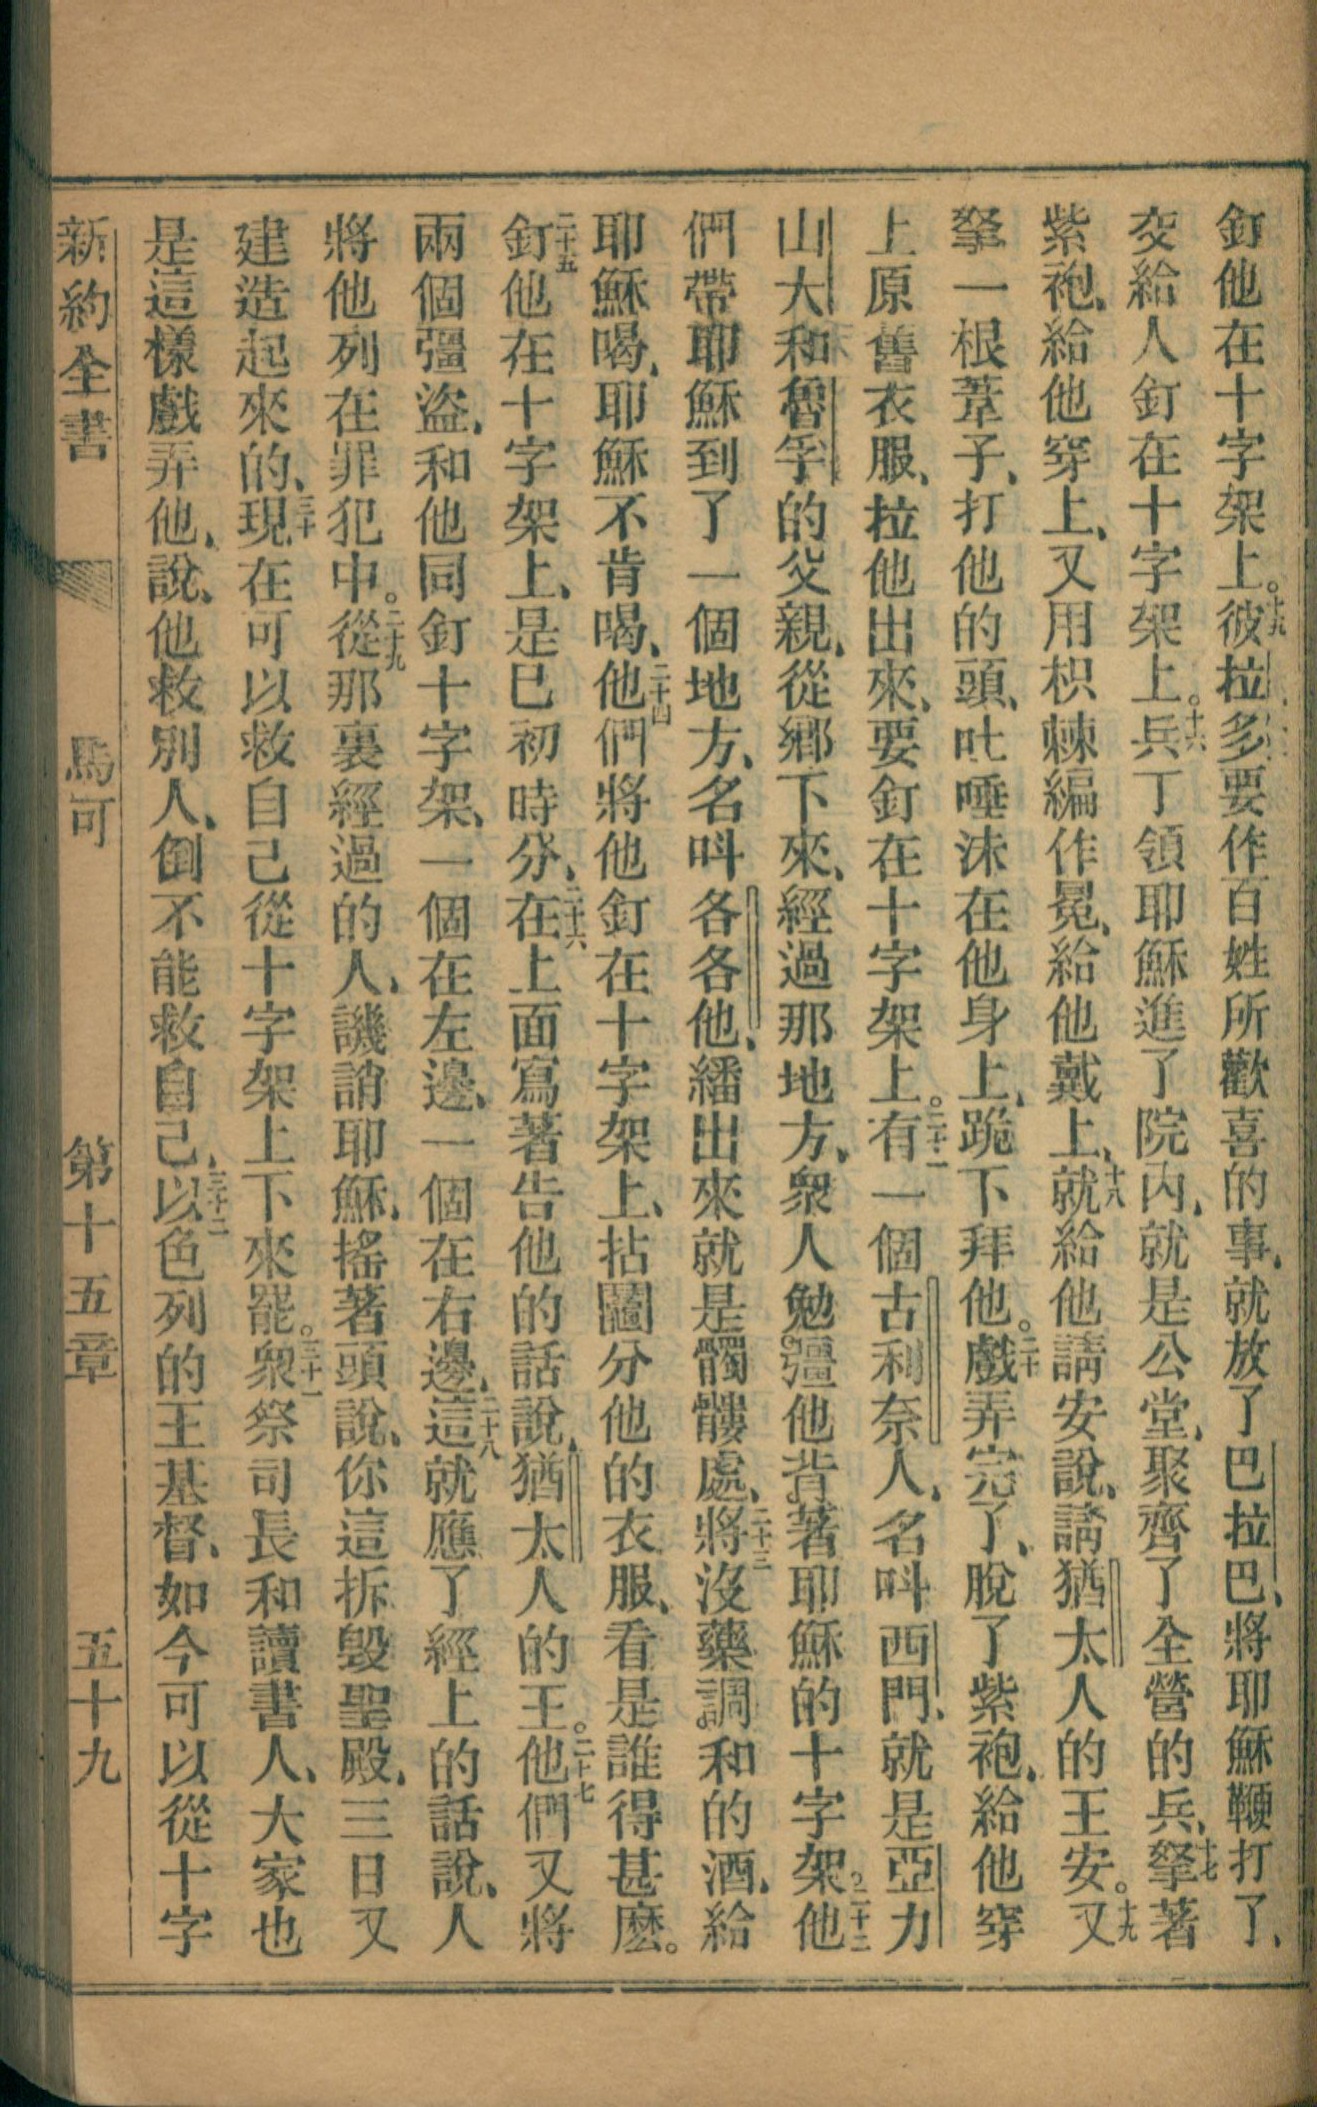 釘他在十字架上。十五彼拉多要作百姓所歡喜的事、就放了巴拉巴、將耶穌鞭打了、
交給人釘在十字架上。十六兵丁領耶穌進了院內、就是公堂、聚齊了全營的兵、十七拏著
紫袍、給他穿上、又用枳棘編作冕、給他戴上、十八就給他請安說、請猶太人的王安。十九又
拏一根葦子、打他的頭、吐唾沫在他身上、跪下拜他。二十戲弄完了、脫了紫袍、給他穿
上原舊衣服、拉他出來、要釘在十字架上。二十一有一個古利奈人、名呌西門、就是亞力
山大和魯孚的父親、從鄉下來、經過那地方、衆人勉彊他背著耶穌的十字架。二十二他
們帶耶穌到了一個地方、名呌各各他、繙出來就是髑髏處、二十三將沒藥調和的酒、給
耶穌喝、耶穌不肯喝、二十四他們將他釘在十字架上、拈鬮分他的衣服、看是誰得甚麽。
二十五釘他在十字架上、是巳初時分、二十六在上面寫著告他的話說、猶太人的王。二十七他們又將
兩個彊盜、和他同釘十字架、一個在左邊、一個在右邊、二十八這就應了經上的話說、人
將他列在罪犯中。二十九從那裏經過的人、譏誚耶穌、搖著頭說、你這拆毀聖殿、三日又
建造起來的、三十現在可以救自己從十字架上下來罷。三十一衆祭司長和讀書人、大家也
是這樣戲弄他、說、他救別人、倒不能救自己、三十二以色列的王基督、如今可以從十字
新約全書 馬可 第十五章 五十九